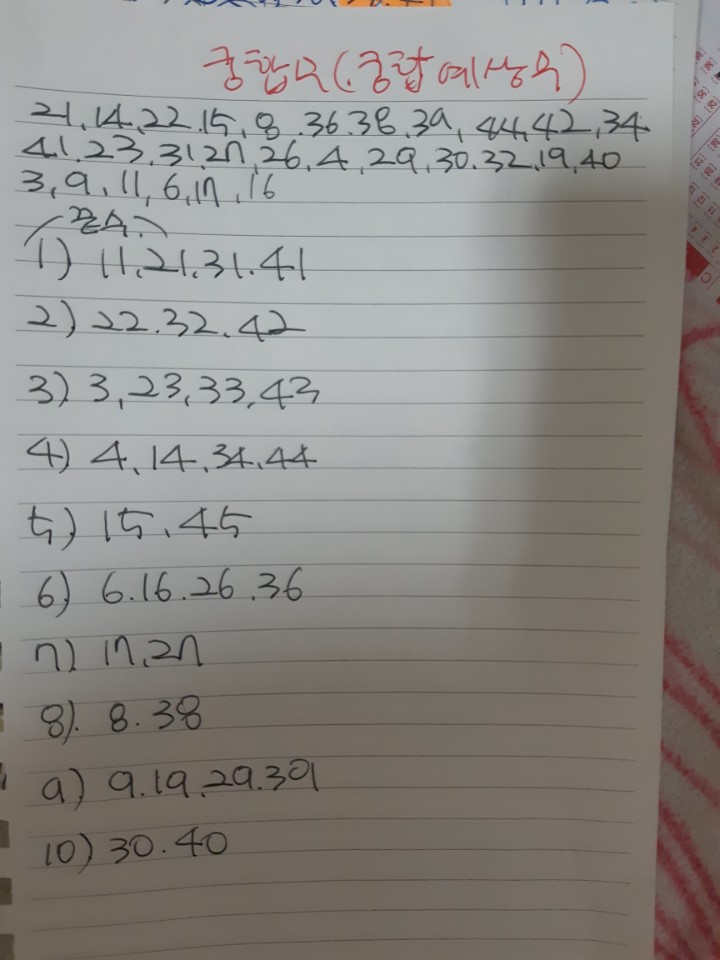 궁합모(.궁합예상수)
21,14,22.15,8.36.38,39,44,42,34
41.23,31,27,26,4,29,30.32.19,40
3,9,11,6,17,16
끝수.
1) 11,21,31.41
2) 22.32.42
3) 3,23,33,43
4) 4,14,34,44
5) 15.45
6) 6.16.26.36
7) 17,27
8). 8.38
9) 9.19,29.39
10) 30.40